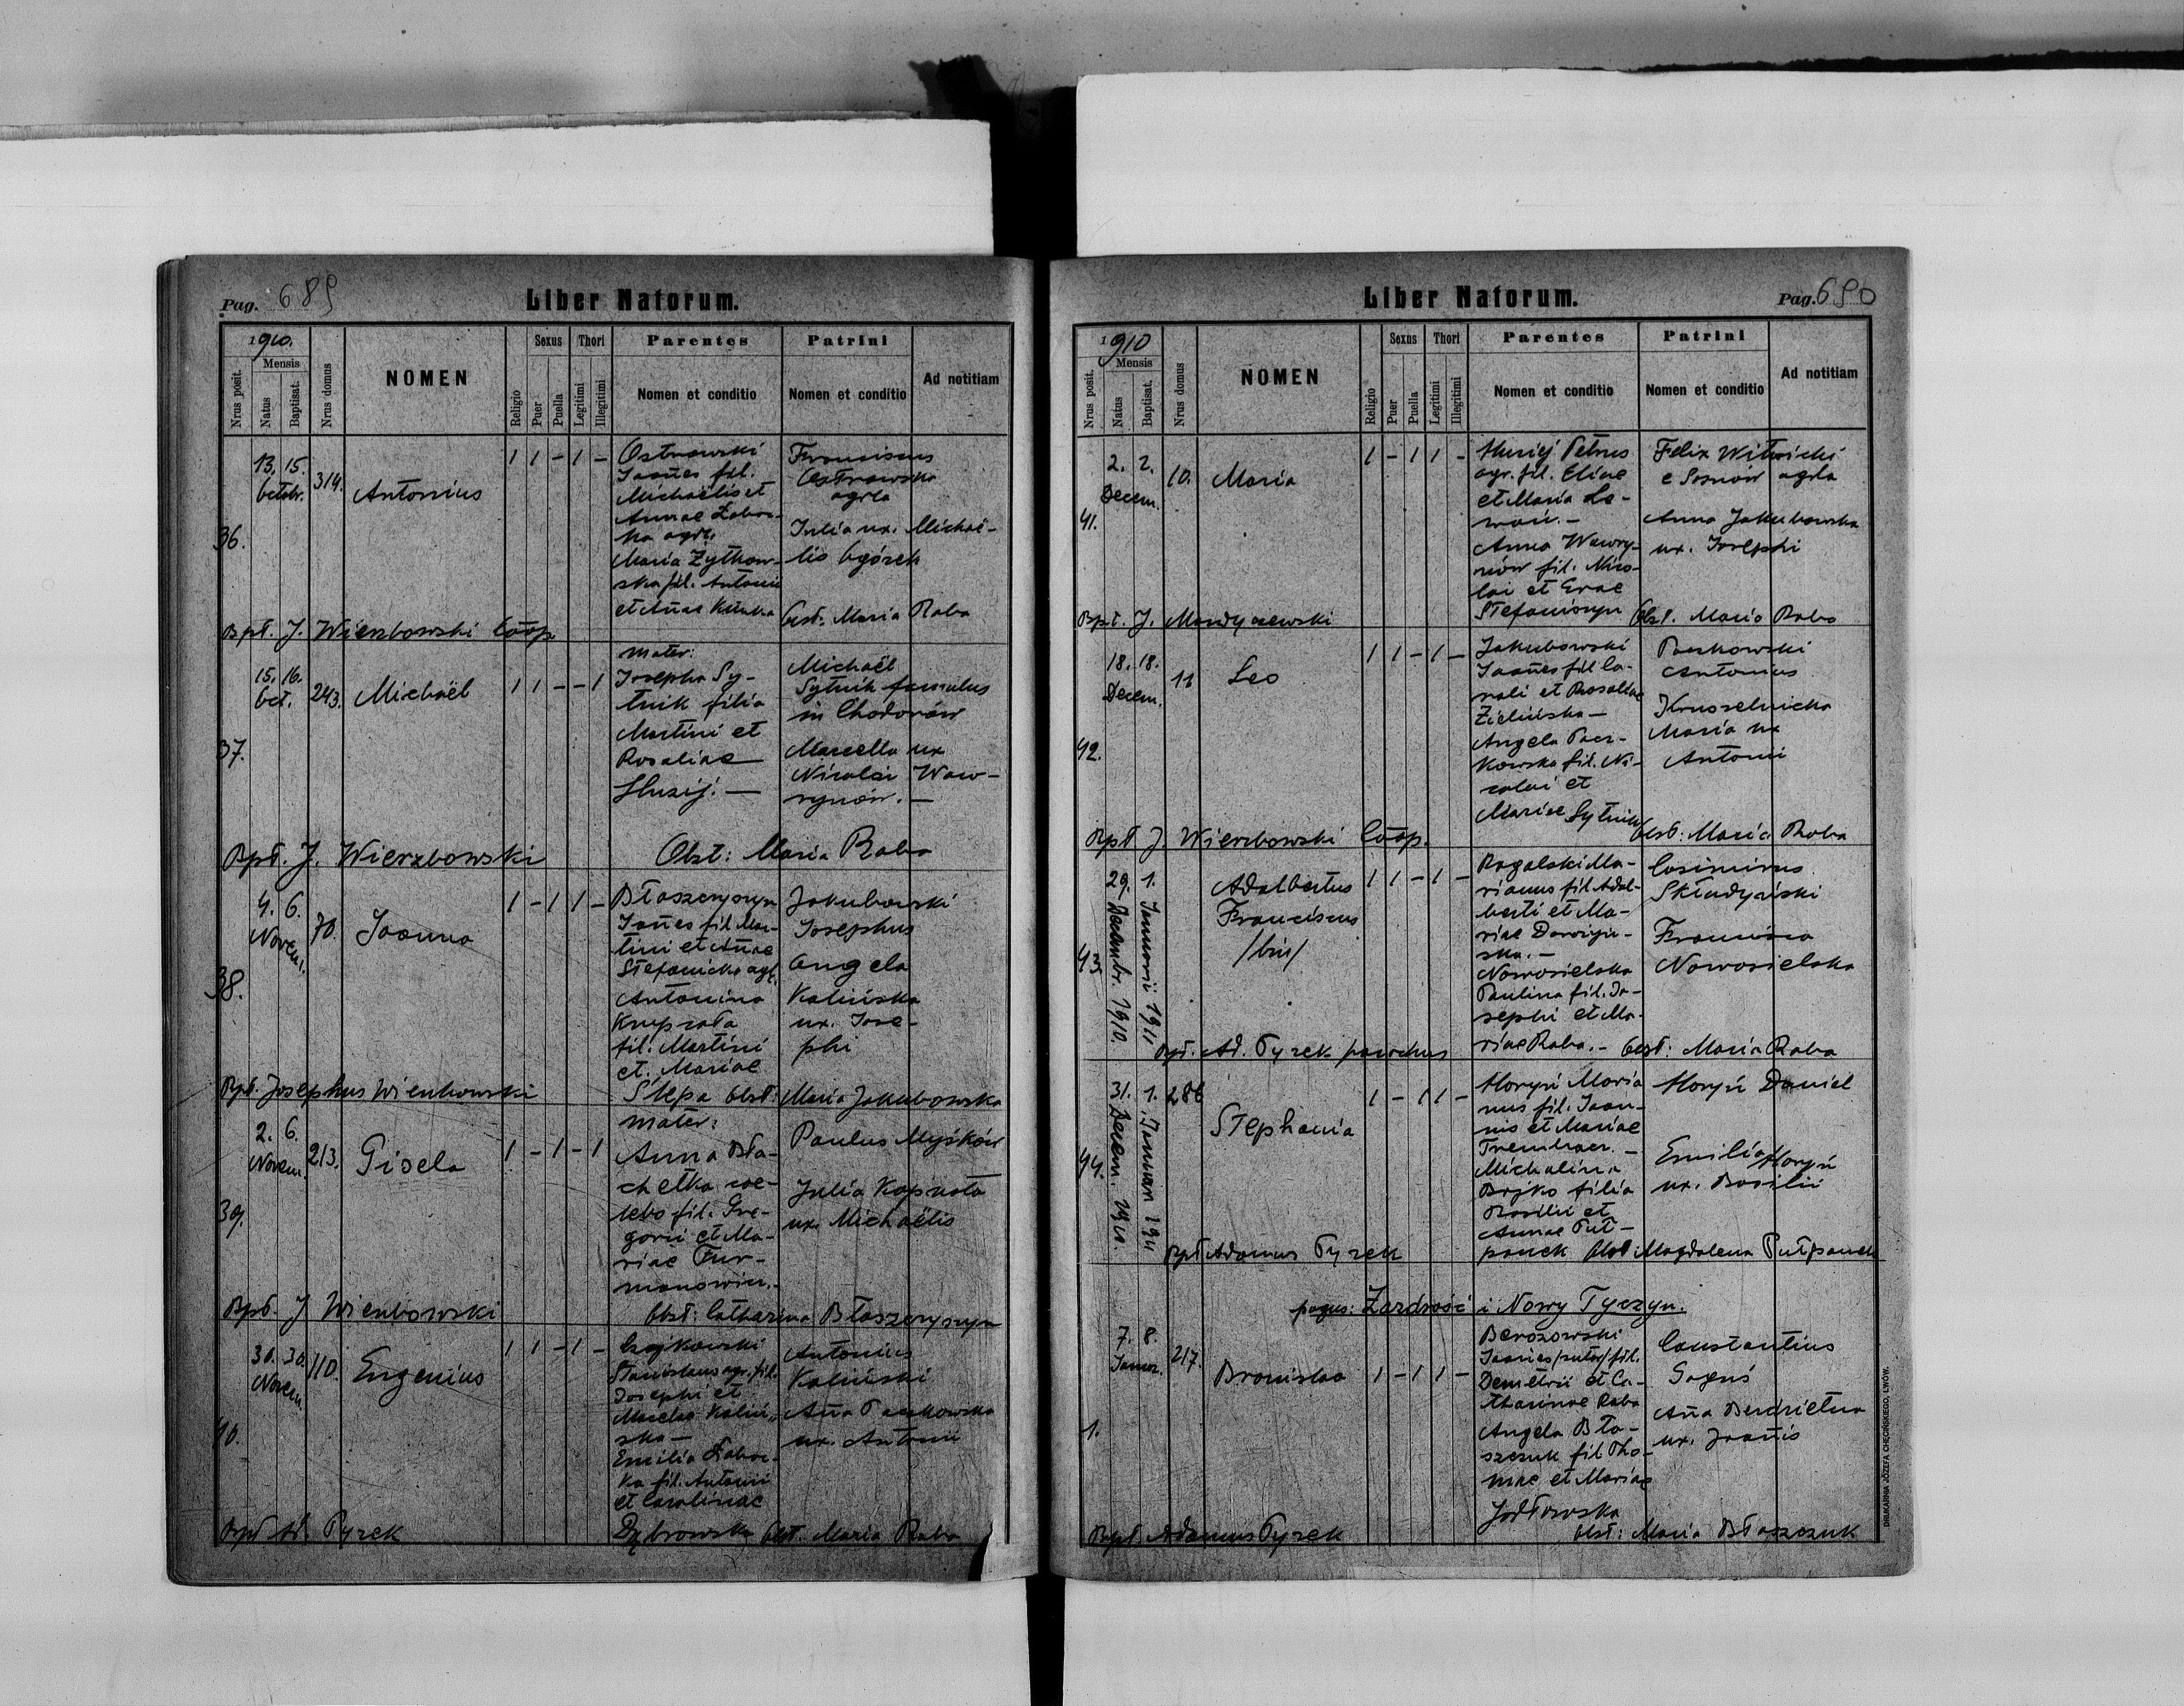 Pag. 689
Liber Natorum.
1910.
Nrus posit.
Mensis
Natus
Baptisat.
Nrus domus
NOMEN
Religio
Sexus
Puer
Puella
Thori
Legitimi
Illegitimi
Parentes
Nomen et conditio
Patrini
Nomen et conditio
Ad notitiam
36.
13. 15.
Octobr.
314.
Antonius
1 1 - 1 -
Ostrowski
Joañes fil.
Michaëlis et
Annae Zabor-
ka agr.
Maria Żytkow-
ska fil. Antonii
et Añae
Franciscus
Ostrowski
agrla
Julia ux. Michaë-
lis Ogórek
Obst: Maria Raba
Bpt. J. Wierzbowski Coop
37.
15. 16.
Oct.
243.
Michaël
1 1 - - 1
mater:
Josepha Sy-
tnik filia
Martini et
Rosaliae
Huzij. —
Michaël
Sytnik famulus
in Chodorów
Marcella ux
Nicolai Waw-
rynów. —
Bpt. J. Wierzbowski
Obst: Maria Raba
38.
4. 6.
Novem.
70.
Joanna
1 - 1 1 -
Błaszczyszyn
Joañes fil. Mar-
tini et Añae
Stefanicka agl.
Antonina
fil. Martini
et. Mariae
Slepa
Jakubowski
Josephus
Angela
Kalińska
ux. Jose-
phi
obst: Maria Jakubowska
Bpt. Josephus Wierzbowski
39.
2. 6.
Novem.
213.
Gisela
1 - 1 - 1
mater:
Anna Bła-
chetka cae-
lebs fil. Gre-
gorii et Ma-
riae Fur-
manowicz.-
Paulus Myśków
Julia
ux. Michaëlis
Bpt. J Wierzbowski
Obst: Catharina Błaszczyszyn
40.
30. 30.
Novem.
110.
Eugenius
1 1 - 1 -
Czajkowski
Stanislaus agr. fil.
Josephi et
Kaliń-
ska —
Emilia Zabor-
ka fil. Antonii
et Carolinae
Dąbrowska
Antonius
Kaliński
Aña Paczkowska
ux. Antonii
obst. Maria Raba
Bpt Ad. Pyzek
Liber Natorum.
Pag. 690
1910
Nrus posit.
Mensis
Natus
Baptisat.
Nrus domus
NOMEN
Religio
Sexus
Puer
Puella
Thori
Legitimi
Illegitimi
Parentes
Nomen et conditio
Patrini
Nomen et conditio
Ad notitiam
41.
2. 2.
Decem.
10.
Maria
1 - 1 1 -
Huzij Petrus
agr. fil. Eliae
et Maria Le-
wań. —
Anna Wawry-
nów fil. Nico-
lai et Evae
Stefaniszyn
Felix Witwicki
e Sosnów agrla
Anna Jakubowska
ux. Josephi
Obst. Maria Raba
Bpt. J. Mandyczewski
42.
18. 18.
Decem.
11
Leo
1 1 - 1 -
Jakubowski
Joañes fil Ca-
roli et Rosaliae
Zielińska —
Angela Pacz-
kowska fil. Ni-
colai et
Mariae Sytnik
Paczkowski
Antonius
Kruszelnicka
Maria ux
Antonii
Obst: Maria Raba
Bpt J. Wierzbowski Coop.
43
29. Decembr. 1910.
1. Januarii 1911
Adalbertus
Franciscus
/bin/
1 1 - 1 -
Rogalski Ma-
rianus fil Adal-
berti et Ma-
riae
ska. —
Nowosielska
Paulina fil. Jo-
sephi et Ma-
riae Raba. -
Casimirus
Składyński
Francisca
Nowosielska
obst: Maria Raba
Bpt. Ad. Pyzek parochus
44.
31. Decem. 1910.
1. Januar 1911
286
Stephania
1 - 1 1 -
Horyń Maria
nus fil. Joan-
nis et Mariae
Trembacz. —
Michalina
Bojko filia
Basilii et
Annae Put-
panek
Horyń Daniel
Emilia Horyń
ux. Basilii
Obst Magdalena Putpanek
Bpt Adamus Pyzek
pagus: Zazdrość i Nowy Tyczyn.
1.
7. 8.
Januar.
217.
Bronislaa
1 - 1 1 -
Berozowski
Joañes /sutor/ fil.
Demetrii et Ca-
tharinae Raba
Angela Bła-
szczuk fil Tho-
mae et Mariae
Jodłowska
Constantius
Goguś
Aña
ux. Joañis
Obst: Maria Błaszczuk
Bpt. Adamus Pyzek
DRUKARNIA JÓZEFA CHĘCIŃSKIEGO, LWÓW.